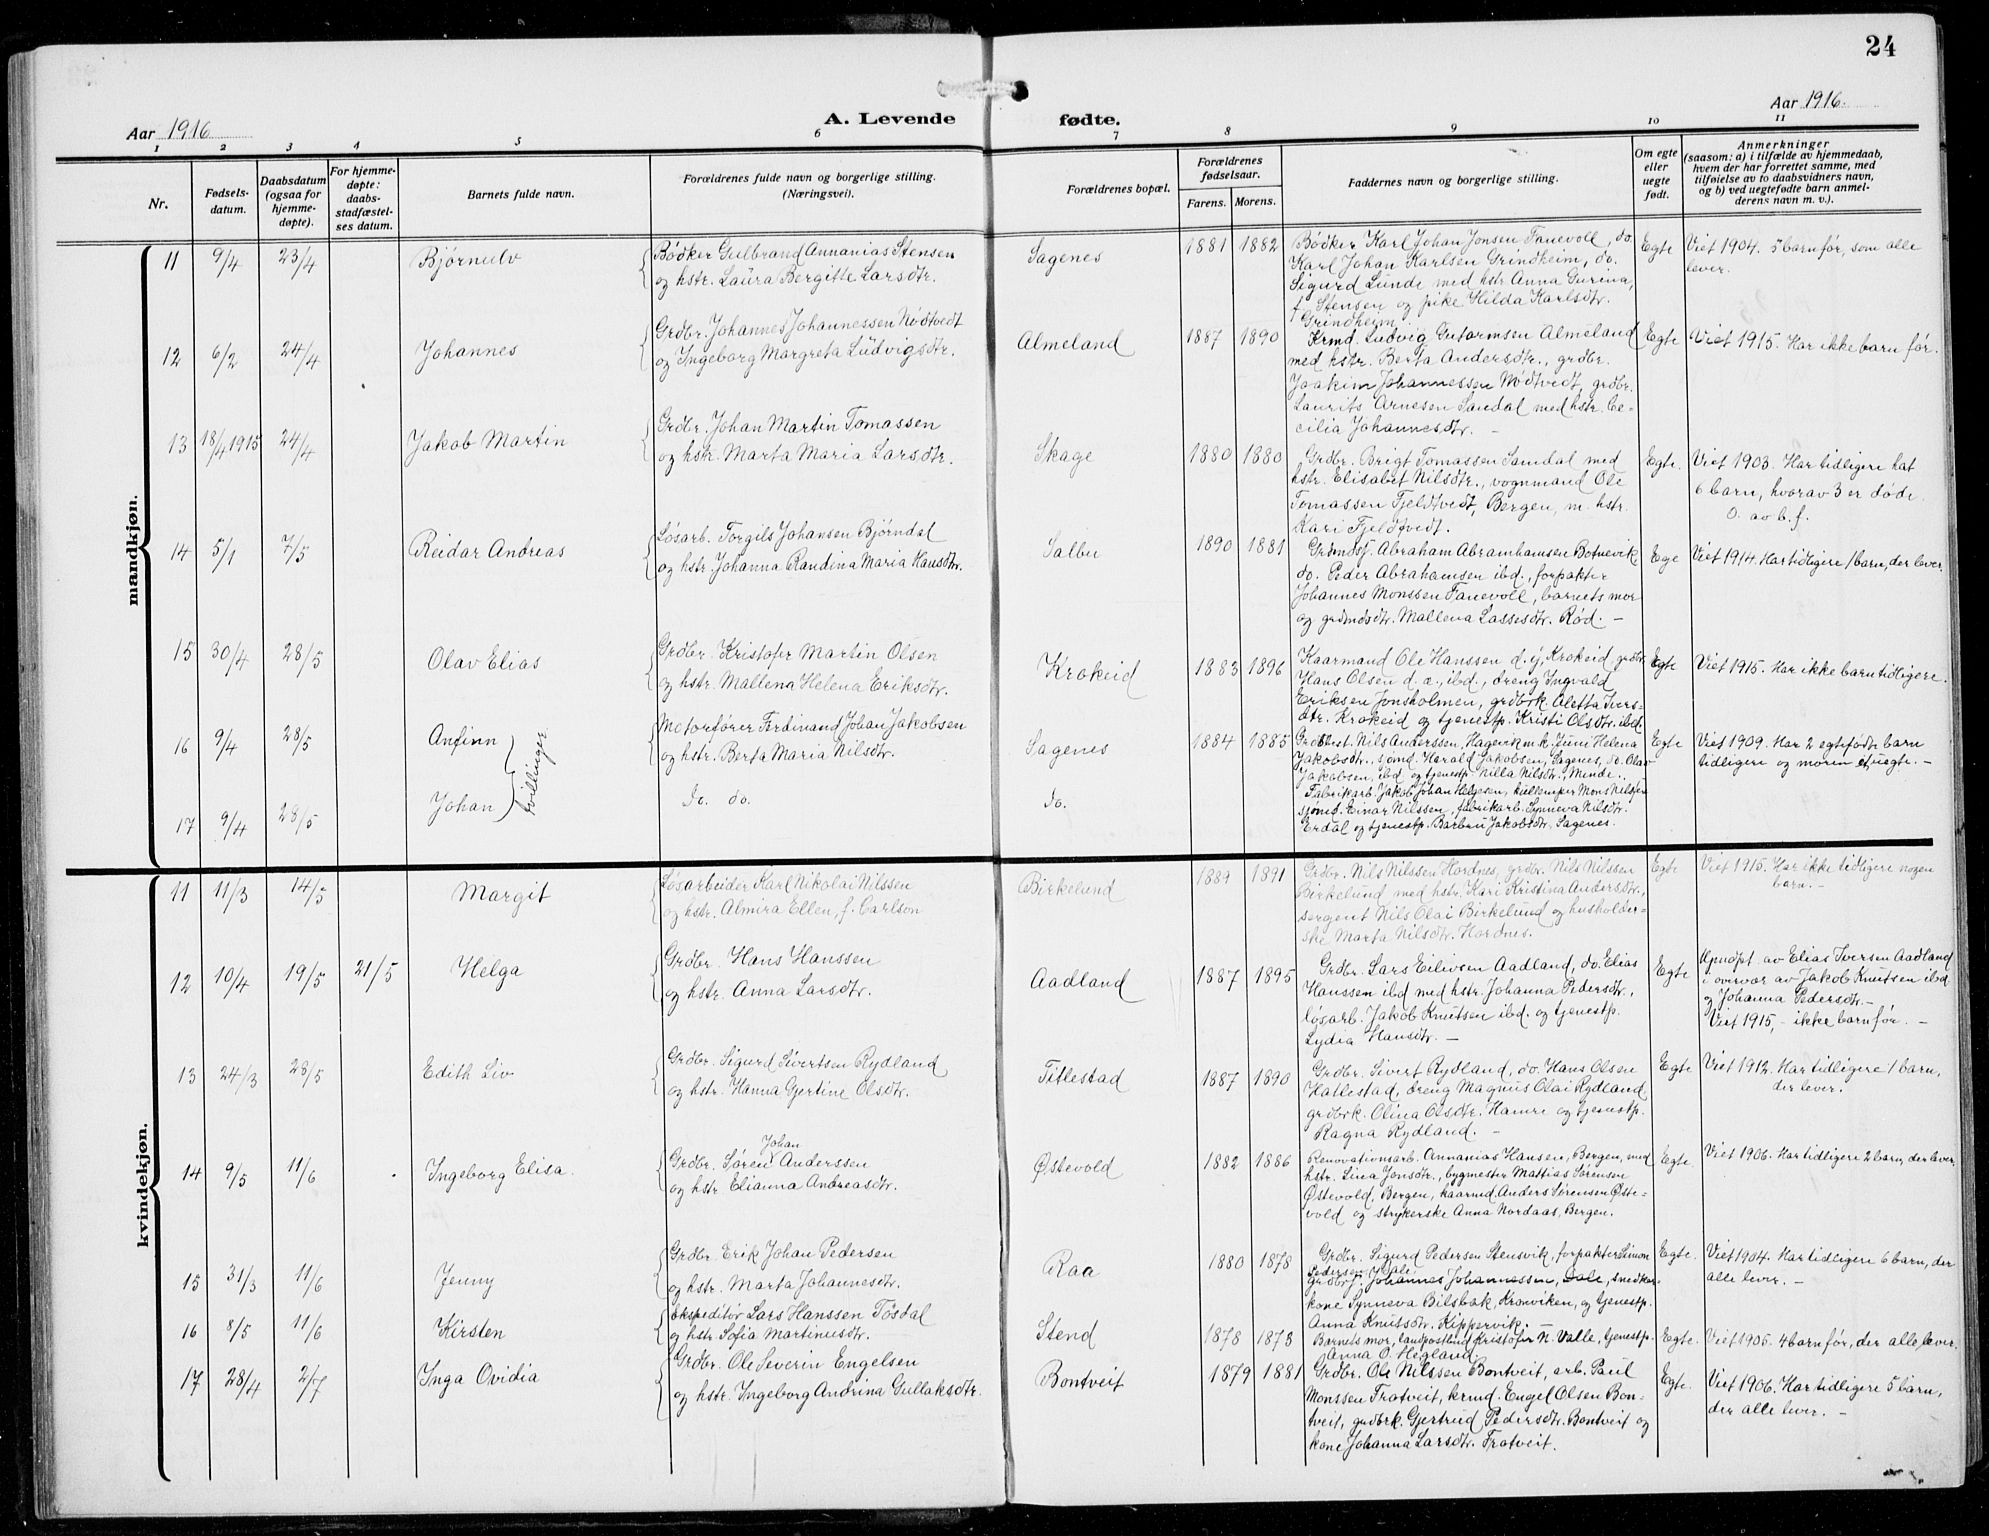 24
Aar 1916
A. Levende fødte.
Aar 1916.
1 2 3 4 5 6 7 8 9 10 11
Nr.
Fødsels-
datum.
Daabsdatum
(ogsaa for
hjemme-
døpte).
For hjemme-
døpte:
daabs-
stadfæstel-
ses datum.
Barnets fulde navn.
Forældrenes fulde navn og borgerlige stilling.
(Næringsvei).
Forældrenes bopæl.
Forældrenes
fødselsaar.
Farens. Morens.
Faddernes navn og borgerlige stilling.
Om egte
eller
uegte
født.
Anmerkninger
(saasom: a) i tilfælde av hjemmedaab,
hvem der har forrettet samme, med
tilføielse av to daabsvidners navn,
og b) ved uegtefødte barn anmel-
derens navn m. v.).
mandkjøn.
11 9/4 23/4 Bjørnulv
Bødker Gulbrand Annanias Stensen
og hstr. Laura Bergitte Larsdtr.
Sagenes 1881 1882
Bødker Karl Johan Jonsen Fanevoll, do.
Karl Johan Karlsen Grindheim, do.
Sigurd Lunde med hstr. Anna Gurina,
f. Stensen og pike Hilda Karlsdtr.
Grindheim.
Egte
Viet 1904. 5 barn før, som alle
lever.
12 6/2 24/4 Johannes
Grdbr. Johannes Johannessen Nødtvedt
og Ingeborg Margreta Ludvigsdtr.
Almeland 1887 1890
Krmd. Ludvig Gutormsen Almeland
med hstr. Berta Andersdtr., grdbr.
Joakim Johannessen Nødtvedt, grdbr.
Laurits Arnesen Sandal med hstr. Ce-
cilia Johannesdtr. –
Egte
Viet 1915. Har ikke barn før.
13 18/4 1915 24/4 Jakob Martin
Grdbr. Johan Martin Tomassen
og hstr. Marta Maria Larsdtr.
Skage 1880 1880
Grdbr. Brigt Tomassen Sandal med
hstr. Elisabet Nilsdtr., vognmand Ole
Tomassen Fjeldtvedt, Bergen, m. hstr.
Kari Fjeldtvedt.
Egte.
Viet 1903. Har tidligere hat
6 barn, hvorav 3 er døde.
O. av b. f.
14 5/1 7/5 Reidar Andreas
Løsarb. Torgils Johansen Bjørndal
og hstr. Johanna Randina Maria Hansdtr.
Salbu 1890 1881
Grdmdsj. Abraham Abramhamsen Botnevik,
do. Peder Abrahamsen ibd., forpakter
Johannes Monssen Fanevoll, barnets mor
og grdmdsdtr. Mallena Lassesdtr. Rød. –
Ege
Viet 1914. Har tidligere 1 barn, der lever.
15 30/4 28/5 Olav Elias
Grdbr. Kristofer Martin Olsen
og hstr. Mallena Helena Eriksdtr.
Krokeid 1883 1896
Kaarmand Ole Hanssen d. y., Krokeid, grdbr.
Hans Olsen d. æ., ibd., dreng Ingvald
Eriksen Jonsholmen, grdbrk. Aletta Ivers-
dtr. Krokeid og tjenestp. Kristi Olsdtr. ibd.
Egte
Viet 1915. Har ikke barn tidligere.
16 9/4 28/5 Anfinn
tvillinger.
Motorfører Ferdinand Johan Jakobsen
og hstr. Berta Maria Nilsdtr.
Sagenes 1884 1885
Grdbest. Nils Anderssen, Hagevik m. k. Juni Helena
Jakobsdtr., sjømd. Harald Jakobsen, Sagenes, do. Olav
Jakobsen, ibd og tjenestp. Nilla Nilsdtr., Mende..
Egte
Viet 1909. Har 2 egtefødte barn
tidligere og moren et uegte. –
17 9/4 28/5 Johan
Do. do.
do.
Fabrikarb. Jakob Johan Helgesen, kullemper Mons Nilssen
sjømd. Einar Nilssen, fabrikarb. Synneva Nilsdtr.
Erdal og tjenestp. Barbru Jakobsdtr. Sagenes.
kvindekjøn.
11 11/3 14/5 Margit
Løsarbeider Karl Nikolai Nilssen
og hstr. Almira Ellen, f. Carlson
Birkelund 1889 1891
Grdbr. Nils Nilssen Hordnes, grdbr. Nils Nilssen
Birkelund med hstr. Kari Kristina Andersdtr.,
sergent Nils Olai Birkelund og husholder-
ske Marta Nilsdtr. Hordnes.
Egte
Viet 1915. Har ikke tidligere nogen
barn. –
12 10/4 19/5 21/5 Helga
Grdbr. Hans Hanssen
og hstr. Anna Larsdtr.
Aadland 1887 1895
Grdbr. Lars Eilivsen Aadland, do. Elias
Hanssen ibd med hstr. Johanna Pedersdtr.,
løsarb. Jakob Knutsen ibd. og tjenestp.
Lydia Hansdtr. –
Egte
Hjmdøpt av Elias Iversen Aadland
i overvær av Jakob Knutsen ibd.
og Johanna Pedersdtr. –
Viet 1915, – ikke barn før. –
13 24/3 28/5 Edith Liv
Grdbr. Sigurd Sivertsen Rydland
og hstr. Hanna Gjertine Olsdtr.
Titlestad 1887 1890
Grdbr. Sivert Rydland, do. Hans Olsen
Hatlestad, dreng Magnus Olai Rydland
grdbrk. Olina Olsdtr. Hamre og tjenestp.
Ragna Rydland. –
Egte
Viet 1912. Har tidligere 1 barn,
der lever.
14 9/5 11/6 Ingeborg Elisa.
Johan
Grdbr. Søren Anderssen
og hstr Elianna Andreasdtr.
Østevold 1882 1886
Renovationsarb. Annanias Hansen, Bergen, med
hstr. Lina Jonsdtr., bygmester Mattias Sørensen
Østevold, Bergen, kaarmd. Anders Sørensen Øste-
vold og strykerske Anna Nordaas, Bergen.
Egte
Viet 1906. Har tidligere 2 barn, der lever.
15 31/3 11/6 Jenny
Grdbr. Erik Johan Pedersen
og hstr. Marta Johannesdtr.
Raa 1880 1878
Grdbr. Sigurd Pedersen Stensvik, forpakter Simon
Pedersen Dale,
grdbrsj. Johannes Johannessen, Dale, smedkar-
kone Synneva Bilsbak, Kronviken, og tjenestp.
Anna Knutsdtr. Kippervik. –
Egte.
Viet 1904. Har tidligere 6 barn, der
alle lever. –
16 8/5 11/6 Kirsten
Ekspeditør Lars Hanssen Tøsdal
og hstr. Sofia Martinusdtr.
Stend 1878 1873
Barnets mor, landpostbud Kristofer N. Valle, tjenestp.
Anna O. Hegland.
Egte.
Viet 1905. 4 barn før, der alle lever.
17 28/4 2/7 Inga Ovidia
Grdbr. Ole Severin Engelsen
og hstr. Ingeborg Andrina Gullaksdtr.
Bontveit 1879 1881
Grdbr. Ole Nilssen Bontveit, arb. Paul
Monssen Fratveit, krmd. Engel Olsen Bon-
tveit, grdbrk. Gjertrud Pedersdtr. Bontveit og
kone Johanna Larsdtr. Fratveit.
Egte.
Viet 1906. Har tidligere 5 barn,
der alle lever. –